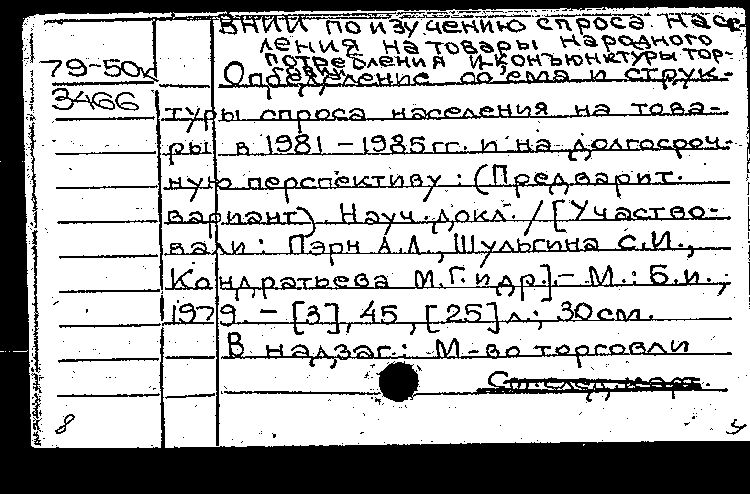 ВНИИ по изучению спроса насе-
ления на товары народного
потребления и конъюнктуры тор-
79-50к
Определение объема и струк-
3466
туры спроса населения на това-
ры в 1981-1985гг. и на долгосроч-
ную перспективу: (Предварит.
вариант). Науч. докл. / [Участво-
вали: Пэрн А.Л., Шульгина С.И.,
Кондратьева М.Г. и др.]. - М.: Б.и.,
1979. - [3], 45, [25] л.; 30 см.
В надзаг.: М-во торговли
См. след. карт.
8